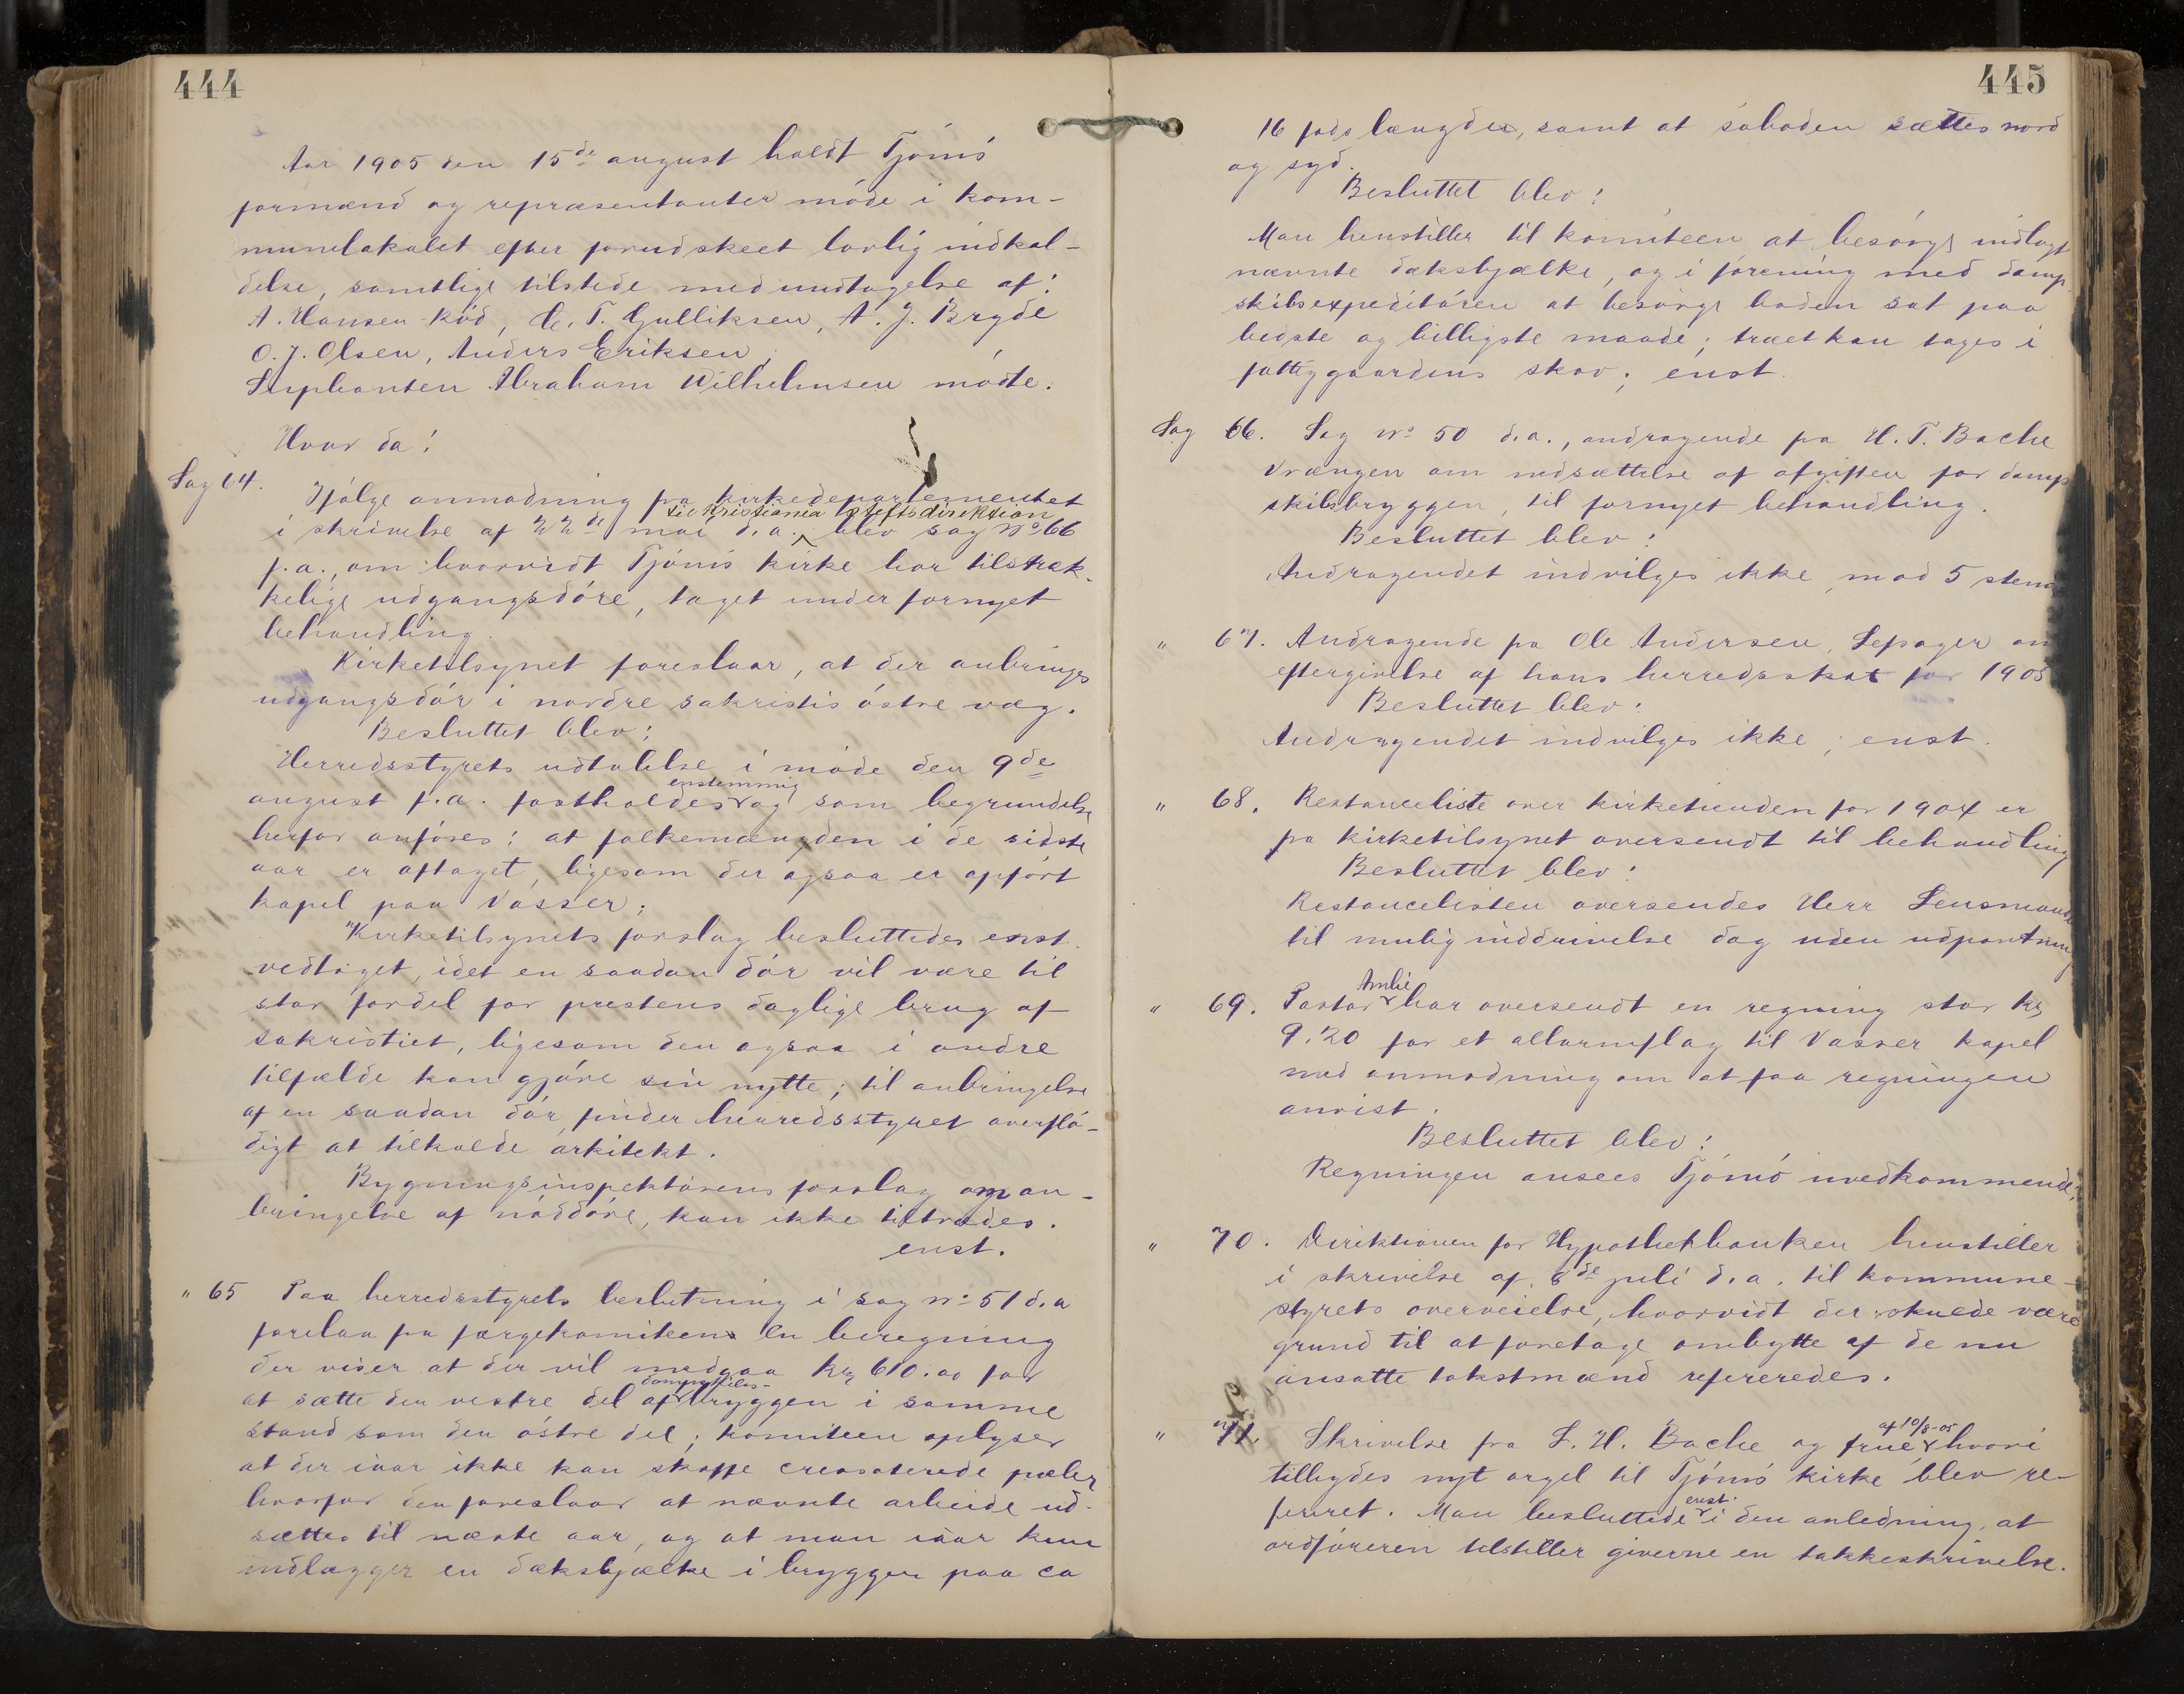 444
Aar 1905 den 15de august holdt Tjömö
formænd og repræsentanter möde i kom-
munelokalet efter forudskeet lovlig indkal-
delse, samtlige tilstede med undtagelse af:
A. Hansen Kød, C. T. Gulliksen, A. J. Bryde
O. J. Olsen, Anders Eriksen,
Suplianten Abraham Wilhelmsen mödte.
Hvor da!
Sag 64. Ifölge anmodning fra kirkedepartementet
til Kristiania stiftsdirektion
i skrivelse af 22de mai d.a. blev sag No 66
f.a., om hvorvidt Tjömö kirke har tilstræk-
kelige udgangsdöre, taget under fornyet
behandling.
Kirketilsynet foreslaar, at der anbringes
udgangsdör i nordre sakristis östre væg.
Besluttet blev:
Herredsstyrets udtalelse i möde den 9de
enstemmig
august f.a. fastholdes og som begrundelse
herfor anföres: at folkemængden i de sidste
aar er aftaget, ligesom der ogsaa er opfört
kapel paa Vasser;
Kirketilsynets forslag besluttedes enst.
vedtaget, idet en saadan dör vil være til
stor fordel for prestens daglige brug af
sakristiet, ligesom den ogsaa i andre
tilfælde kan gjöre sin nytte; til anbringelse
af en saadan dör finder herredsstyret overflö-
digt at tilkalde arkitekt.
Bygningsinspektörens forslag om an-
bringelse af nöddöre, kan ikke tiltrædes.
enst.
" 65 Paa herredsstyrets beslutning i sag No 51 d.a
forelaa fra færgekomiteen en beregning
der viser at der vil medgaa kr 610.00 for
dampskibs-
at sætte den vestre del af bryggen i samme
stand som den östre del; komiteen oplyser
at der iaar ikke kan skaffe creosoterede pæler
hvorfor den foreslaar at nævnte arbeide ud-
sættes til næste aar, og at man iaar kun
indlægger en dæksbjælke i bryggen paa ca
445
16 fods længde, samt at saboden sættes nord
og syd.
Besluttet blev:
Man henstiller til komiteen at besörge indlagt
nævnte dæksbjælke, og i forening med damp
skibsexpeditören at besörge boden sat paa
bedste og billigste maade; træet kan tages i
fattiggaardens skov; enst.
Sag 66. Sag No 50 d.a., andragende fra H. T. Bache
Vrængen om nedsættelse af afgiften for damp
skibsbryggen, til fornyet behandling.
Besluttet blev:
Andragendet indvilges ikke, mod 5 stem
" 67. Andragende fra Ole Andersen, Sepager om
eftergivelse af hans herredsskat for 1905
Besluttet blev:
Andragendet indvilges ikke; enst.
" 68. Restanceliste over kirketienden for 1904 er
fra kirketilsynet oversendt til behandling
Besluttet blev:
Restancelisten oversendes Herr Lensmand
til mulig inddrivelse dog uden udpantning
Amlie
" 69. Pastor har oversendt en regning stor kr
9.20 for et allarmflag til Vasser kapel
med anmodning om at faa regningen
anvist.
Besluttet blev:
Regningen ansees Tjömö uvedkommende,
" 70. Direktionen for Hypothekbanken henstiller
i skrivelse af 8de juli d.a. til kommune-
styrets overveielse, hvorvidt der skulde være
grund til at foretage ombytte af de nu
ansatte takstmænd refereredes.
af 10/8-05
" 71. Skrivelse fra L. H. Bache og frue hvori
tilbydes nyt orgel til Tjömö kirke blev re-
enst.
fereret. Man besluttede i den anledning, at
ordföreren tilstiller giverne en takkeskrivelse.